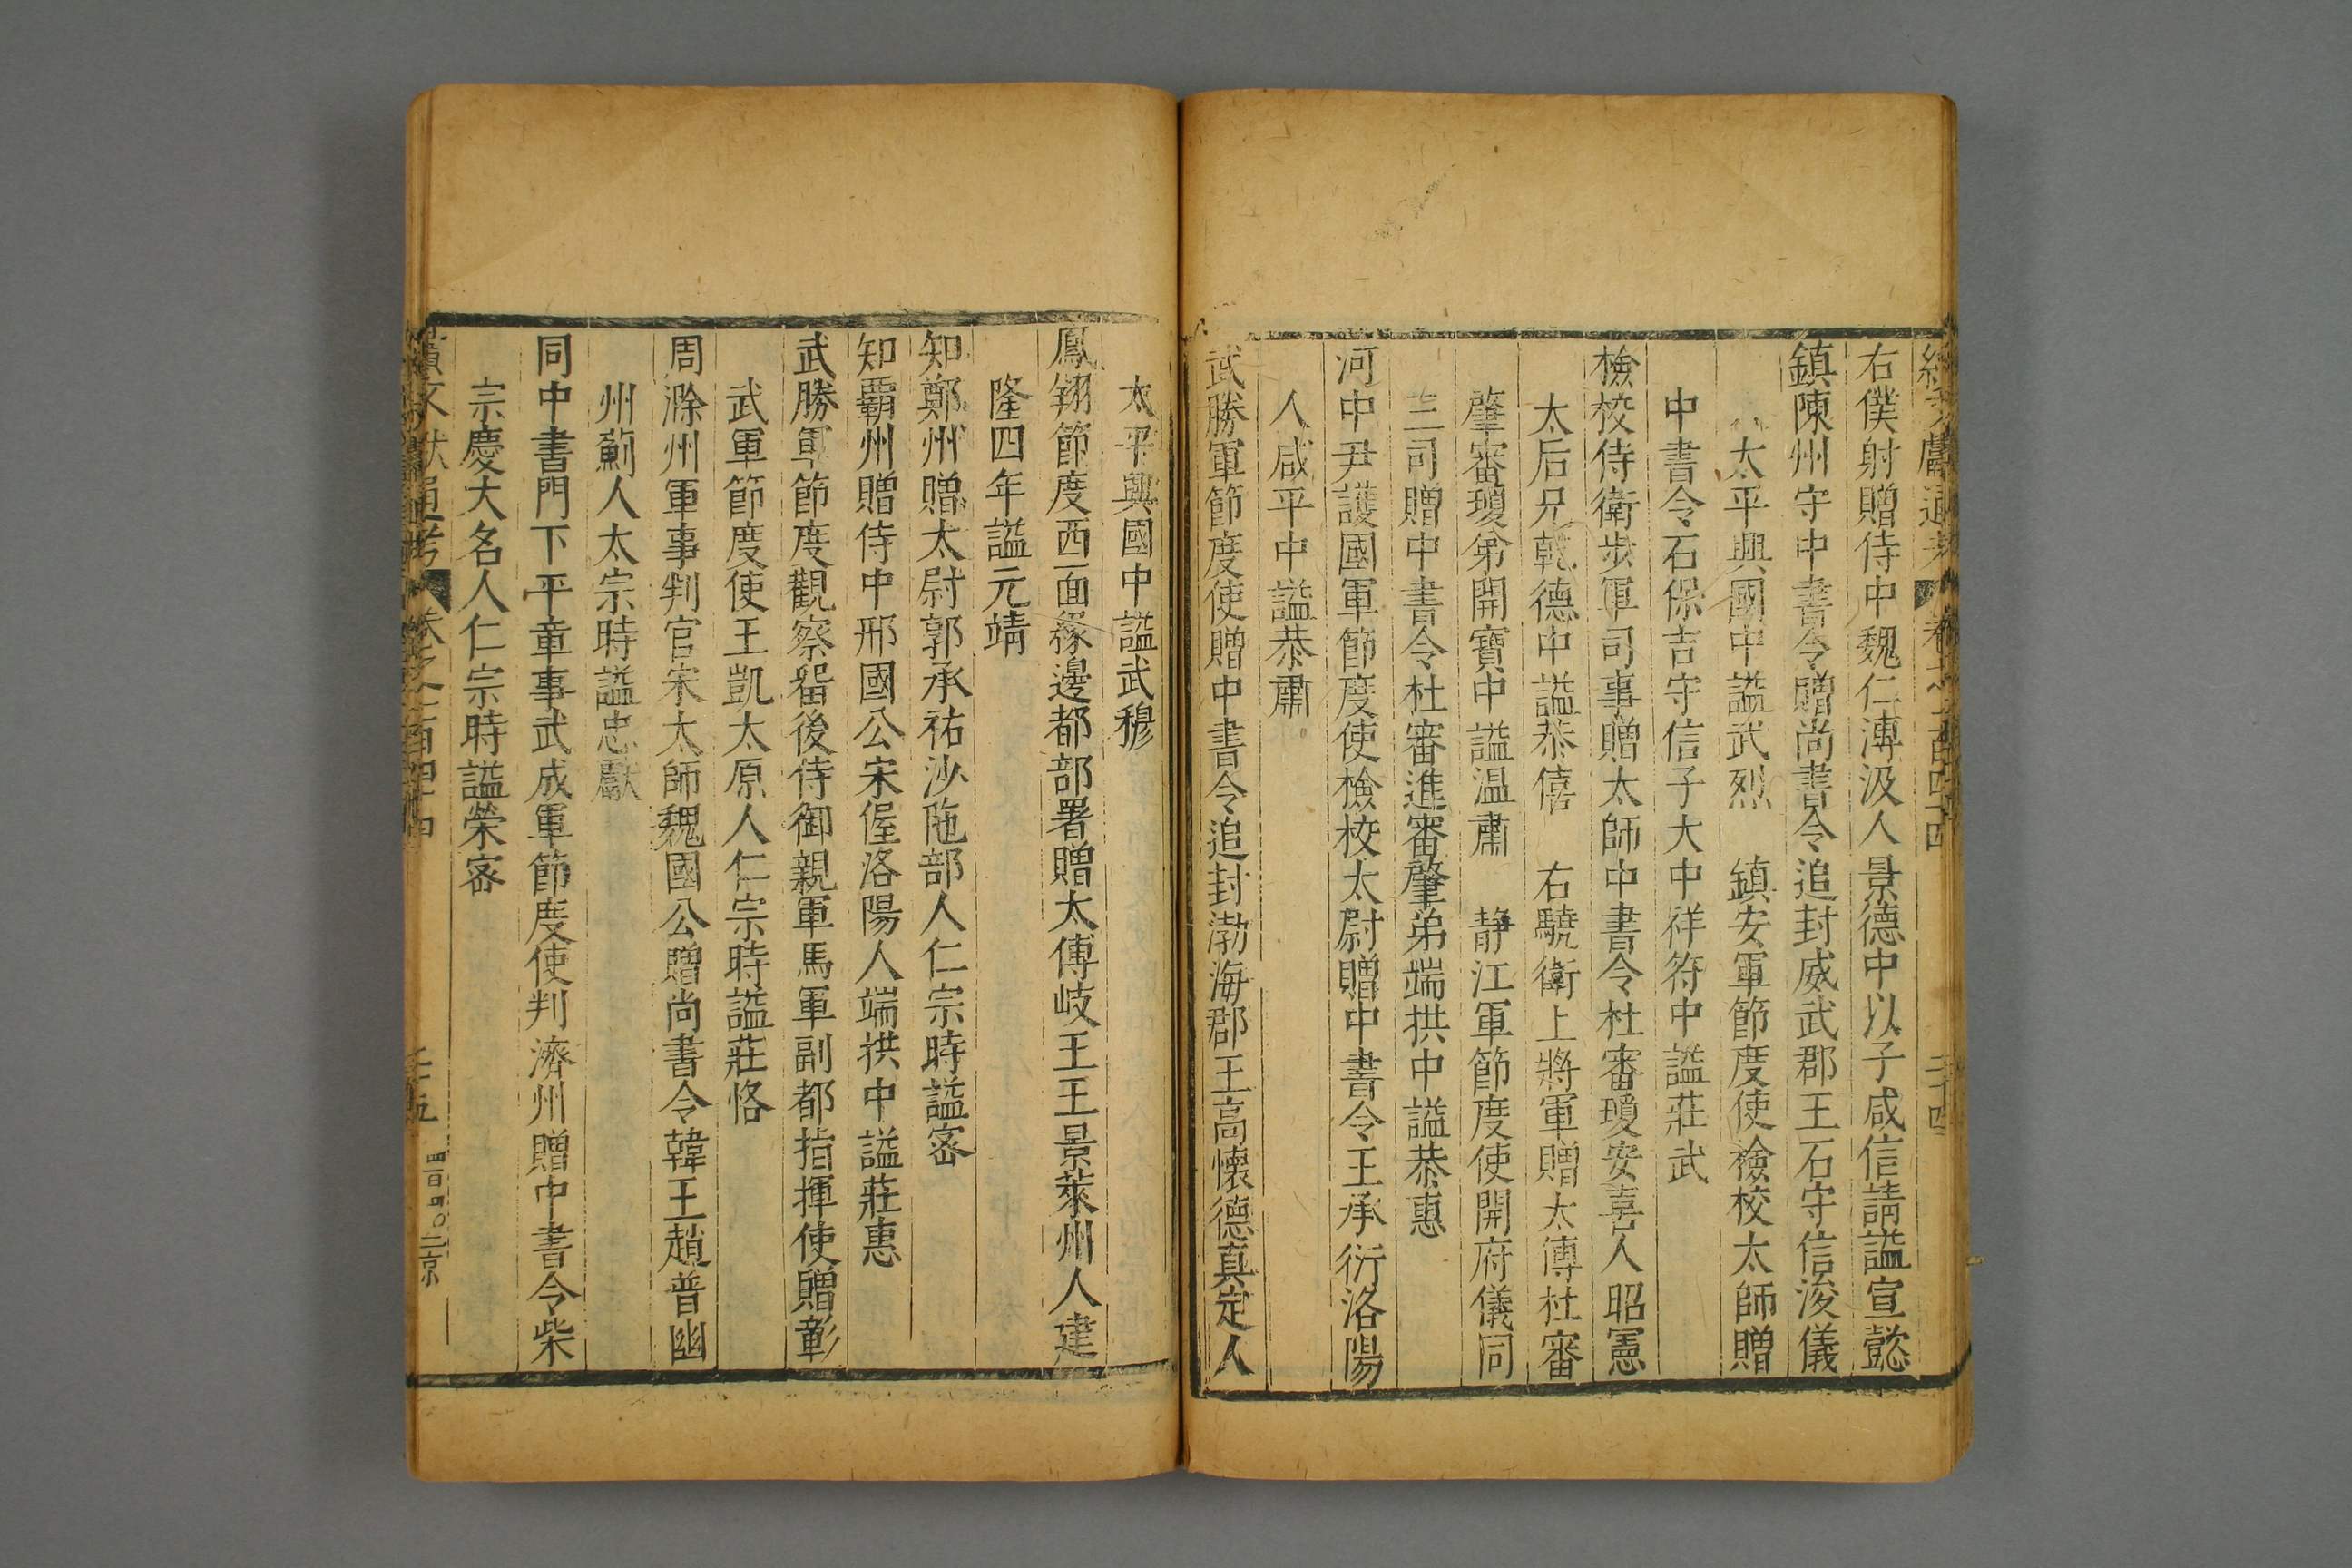 右僕射贈侍中魏仁溥汲人景德中以子咸信請謚宣懿
鎮陳州守中書令贈尚書令追封威武郡王石守信浚儀
太平興國中謚武烈 鎮安軍節度使檢校太師贈
中書令石保吉守信子大中祥符中謚莊武
檢校侍衛步軍司事贈太師中書令杜審瓊安喜人昭憲
太后兄乾德中謚恭僖 右驍衛上將軍贈太傅杜審
肇審瓊弟開寶中謚温肅 静江軍節度使開府儀同
三司贈中書令杜審進審肇弟端拱中謚恭惠
河中尹護國軍節度使檢校太尉贈中書令王承衍洛陽
人咸平中謚恭肅
武勝軍節度使贈中書令追封渤海郡王高懷德真定人
太平興國中謚武穆
鳳翔節度西面緣邊都部署贈太傅岐王王景萊州人建
隆四年謚元靖
知鄭州贈太尉郭承祐沙陁部人仁宗時謚密
知霸州贈侍中邢國公宋偓洛陽人端拱中謚莊惠
武勝軍節度觀察留後侍御親軍馬軍副都指揮使贈彰
武軍節度使王凱太原人仁宗時謚莊恪
周滁州軍事判官宋太師魏國公贈尚書令韓王趙普幽
州薊人太宗時謚忠獻
同中書門下平章事武成軍節度使判濟州贈中書令柴
宗慶大名人仁宗時謚榮密
續文獻通考 卷之一百四十四
二十五